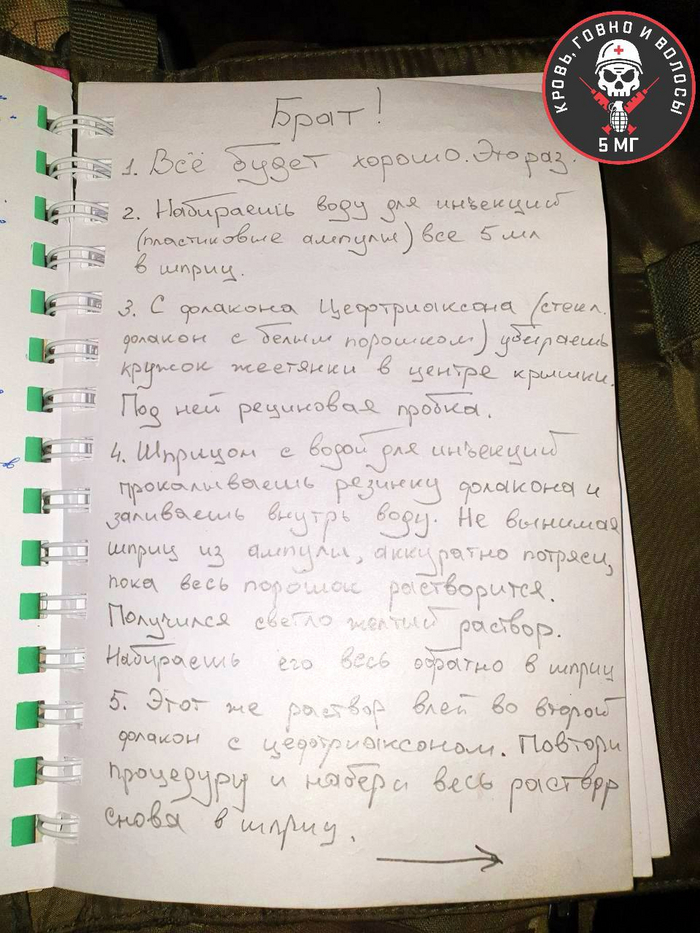 КРОВЬ, ГОВНО И ВОЛОСЫ
5 МГ
Брат!
1. Всё будет хорошо. Это раз.
2. Набираешь воду для инъекций
(пластиковые ампулы) все 5 мл
в шприц.
3. С флакона Цефотриаксона (стекл.
флакон с белым порошком) убираешь
кружок жестянки в центре крышки.
Под ней резиновая пробка.
4. Шприцом с водой для инъекций
прокалываешь резинку флакона и
заливаешь внутрь воду. Не вынимая
шприц из ампулы, аккуратно потряси,
пока весь порошок растворится.
Получился светло желтый раствор.
Набираешь его весь обратно в шприц
5. Этот же раствор влей во второй
флакон с цефотриаксоном. Повтори
процедуру и набери весь раствор
снова в шприц.